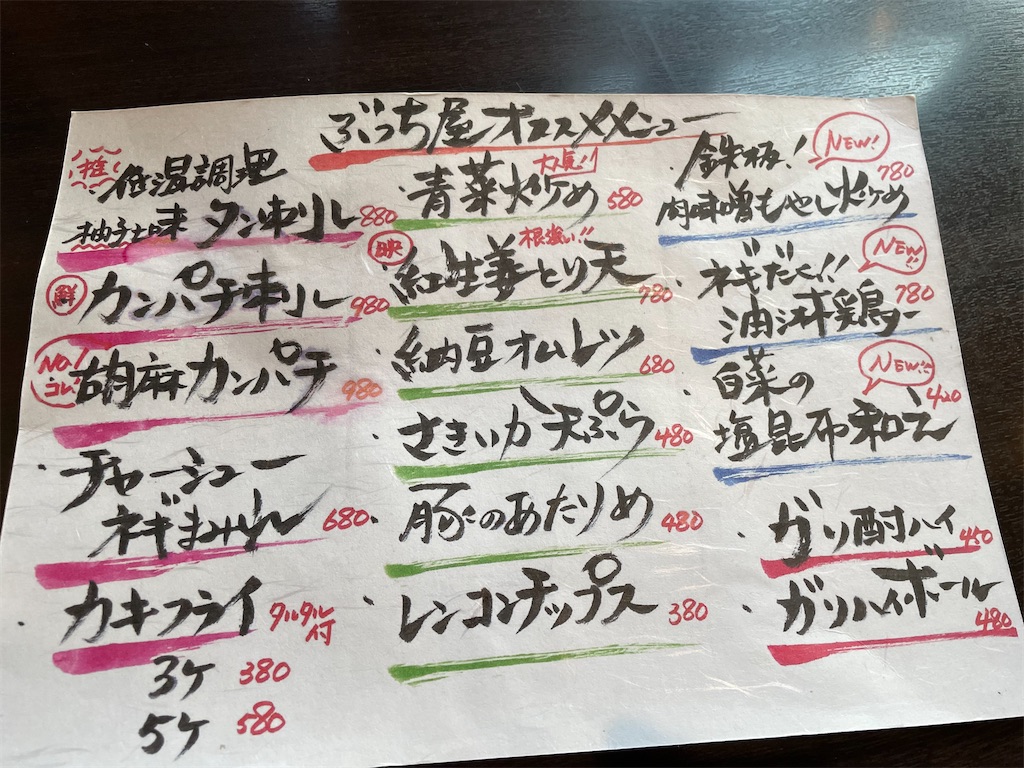 ぶっち屋オススメメニュー
推
・低温調理
柚子味 タン刺し 880
鮮 カンパチ刺し 980
No.1
胡麻カンパチ 980
・チャーシュー
ネギまみれ 680
・カキフライ タルタル付
3ケ 380
5ケ 580
大人気!!
・青菜炒め 580
根強い!!
紅生姜とり天 780
・納豆オムレツ 680
・さきいか天ぷら 480
・豚のあたりめ 480
・レンコンチップス 380
NEW!
・鉄板!
肉味噌もやし炒め 780
NEW!!
・ネギだく!!
油淋鶏ー 780
NEW!!
・白菜の
塩昆布和え 420
・ガリ酎ハイ 450
・ガリハイボール 480